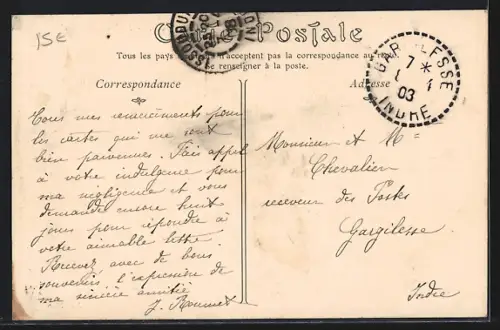 15€
Carte Postale
Tous les pays étrangers n'acceptent pas la correspondance au recto
Se renseigner à la poste.
Correspondance
Adresse
GARGILESSE
7 *
03
INDRE
Tous mes remerciements pour
les cartes qui me sont
bien parvenues. Fais appel
à votre indulgence pour
ma negligence et vous
demande encore huit
jours pour répondre à
votre aimable lettre
Recevez avec de bons
souvenirs l'expression de
ma sincère amitié
Monsieur et Me
Chevalier
receveur des Postes
Gargilesse
Indre